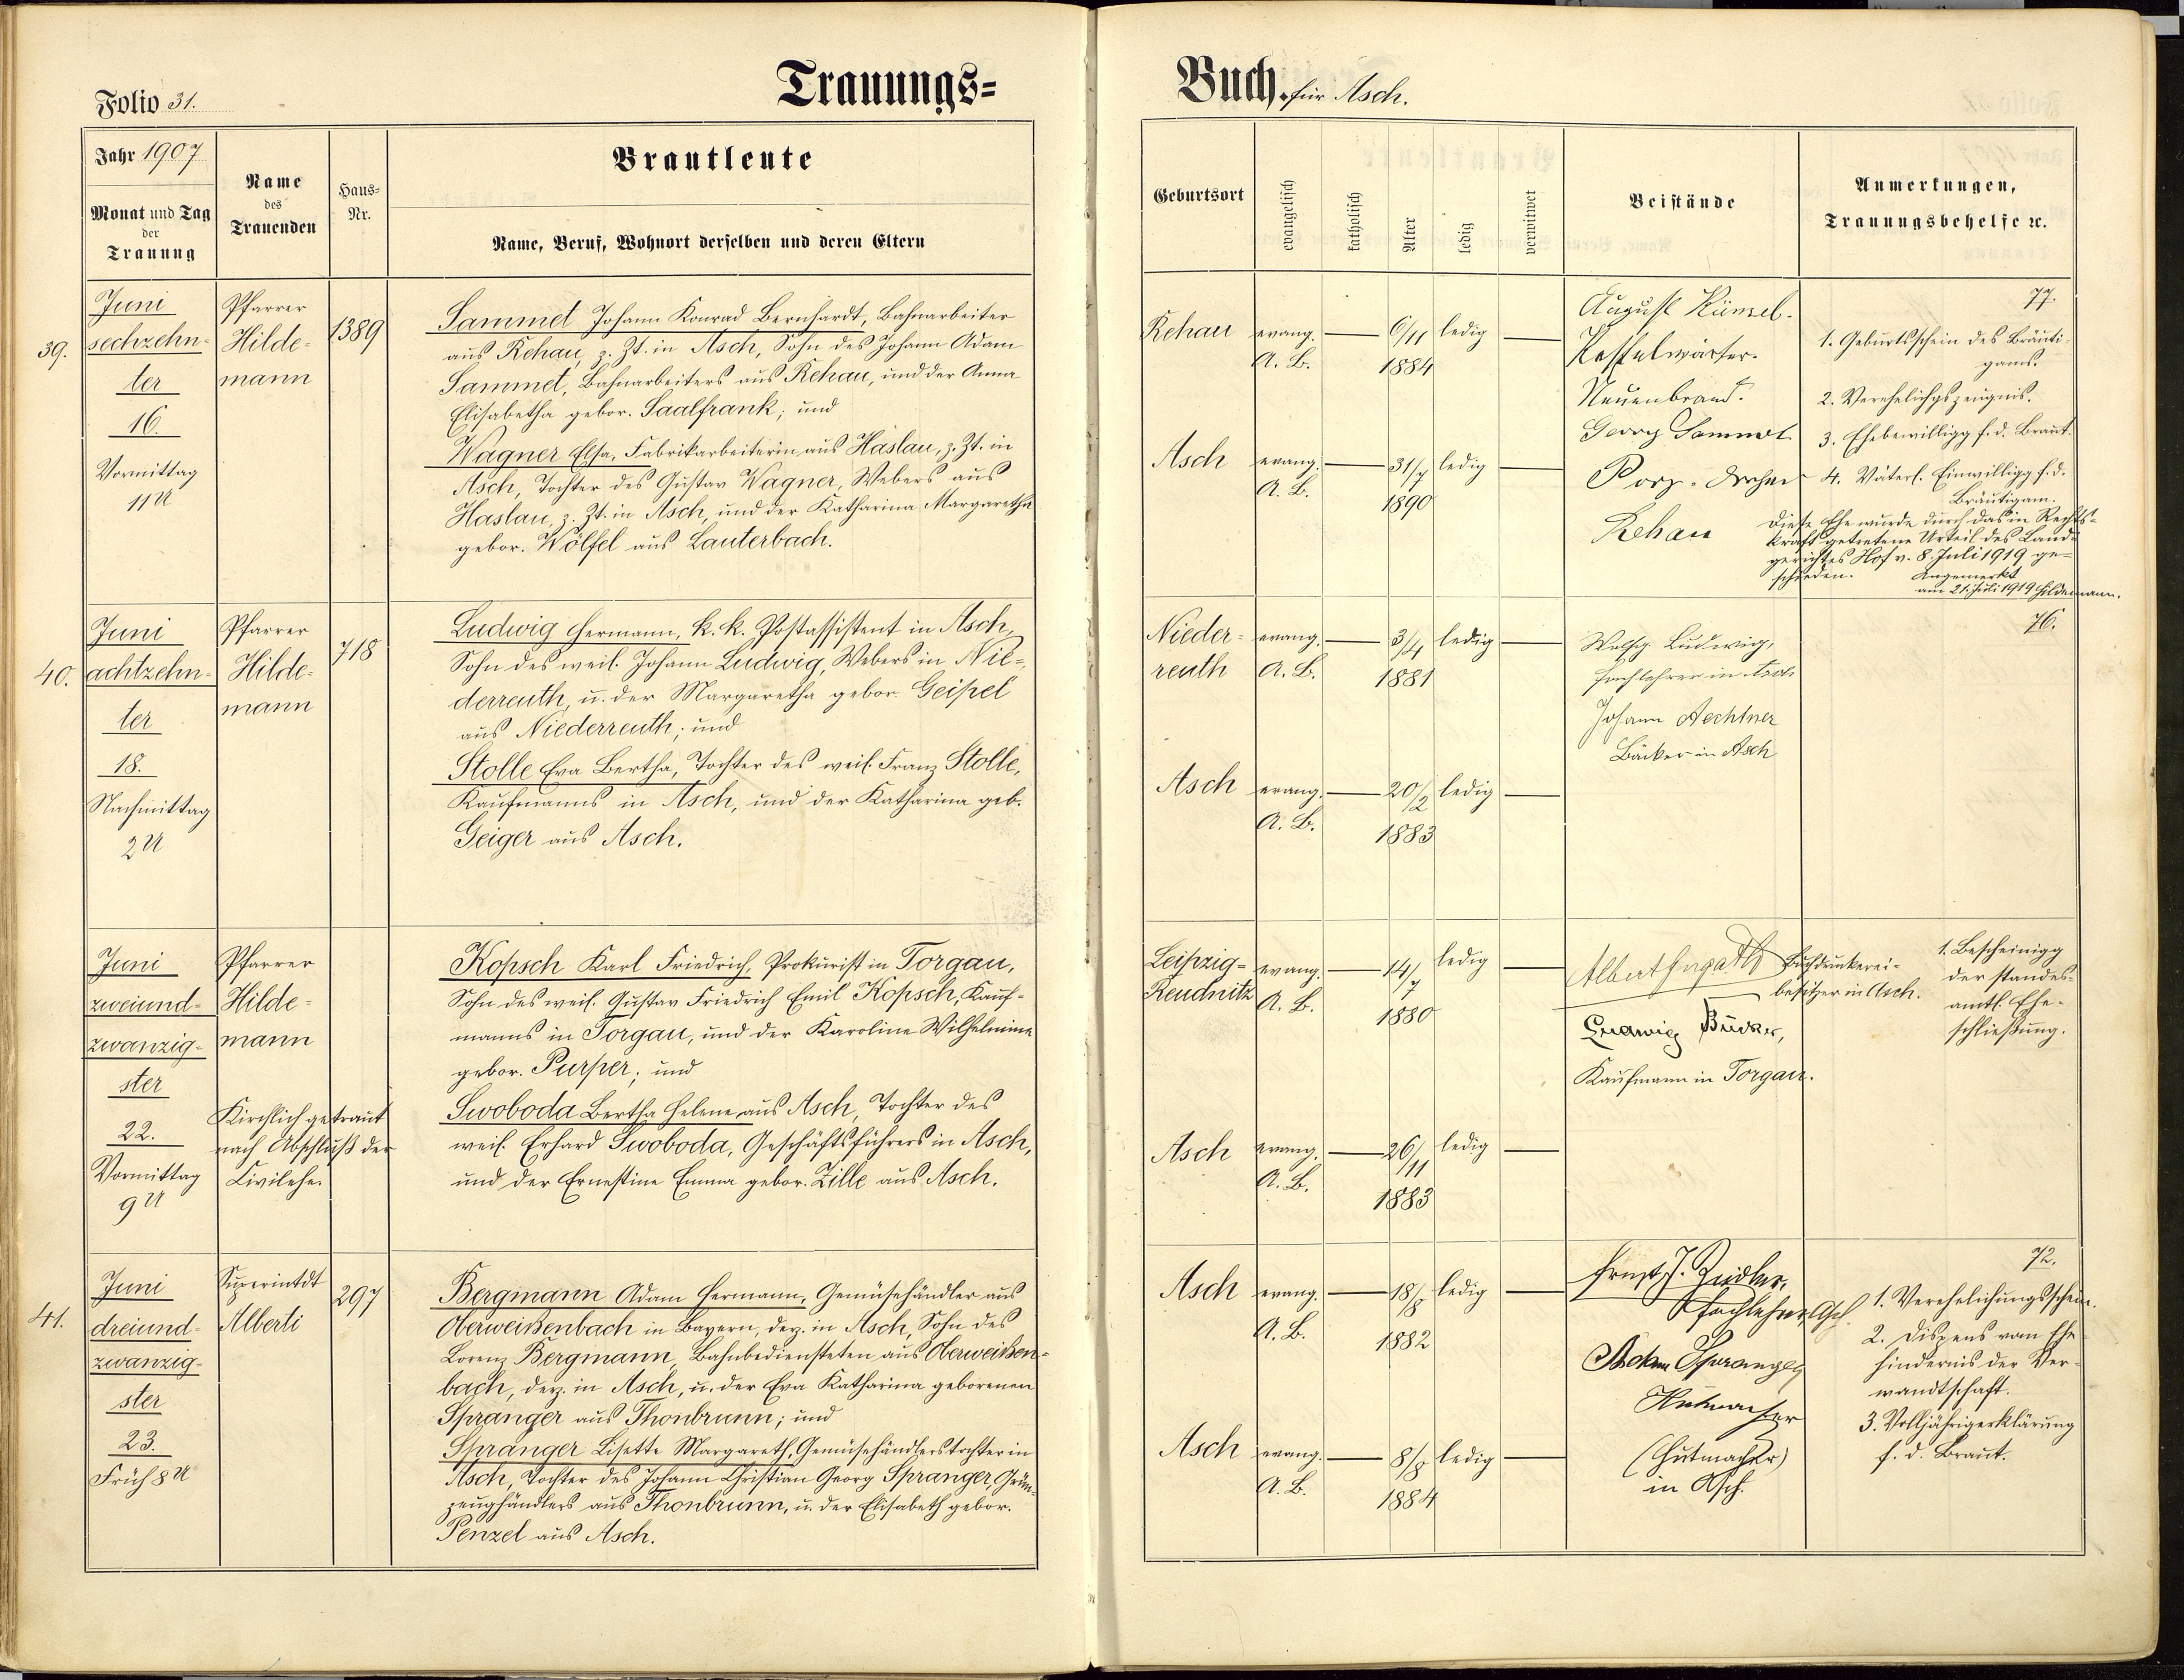 Folio 31.
Trauungs=
Buch. für Asch.
Jahr 1907
Monat und Tag
der
Trauung
Name
des
Trauenden
Haus=
Nr.
Brautleute
Name, Beruf, Wohnort derselben und deren Eltern
Geburtsort
evangelisch
katholisch
Alter
ledig
verwitwet
Beistände
Anmerkungen,
Trauungsbehelfe ꝛc.
39.
Juni
sechzehn=
ter
16.
Vormittag
11 U
Pfarrer
Hilde=
mann
1389
Sammet Johann Konrad Bernhardt, Bahnarbeiter
aus Rehau, z. Zt. in Asch, Sohn des Johann Adam
Sammet, Bahnarbeiters aus Rehau, und der Anna
Elisabetha gebor. Saalfrank; und
Wagner Elsa, Fabrikarbeiterin aus Haslau, z. Zt. in
Asch, Tochter des Gustav Wagner, Webers aus
Haslau, z. Zt. in Asch, und der Katharina Margaretha
gebor. Wölfel aus Lauterbach.
Rehau
evang.
A. B.
6/11
1884
ledig
Asch
evang.
A. B.
31/7
1890
ledig
August Künzel.
Kesselwärter.
Neuenbrand.
Georg Sammet
Porz. Dreher
Rehau
77.
1. Geburtsschein des Bräuti-
gams.
2. Verehelichgszeugnis.
3. Ehebewilligg f. d. Braut.
4. Väterl. Einwilligg f. d.
Bräutigam.
Diese Ehe wurde durch das in Rechts=
kraft getretene Urteil des Land=
gerichtes Hof v. 8. Juli 1919 ge=
schieden. Angemerkt
am 21. Juli 1919 Hildemann.
40.
Juni
achtzehn=
ter
18.
Nachmittag
2 U
Pfarrer
Hilde=
mann
718
Ludwig Hermann, k. k. Postassistent in Asch,
Sohn des weil. Johann Ludwig, Webers in Nie=
derreuth, u. der Margaretha gebor. Geipel
aus Niederreuth; und
Stolle Eva Bertha, Tochter des weil. Franz Stolle,
Kaufmanns in Asch, und der Katharina geb.
Geiger aus Asch.
Nieder=
reuth
evang.
A. B.
3/4
1881
ledig
Asch
evang.
A. B.
20/2
1883
ledig
Wolfg. Ludwig,
Fachlehrer in Asch
Johann Aechtner
Bäcker in Asch
76.
Juni
zweiund=
zwanzig=
ster
22.
Vormittag
9 U
Pfarrer
Hilde=
mann
Kirchlich getraut
nach Abschluß der
Civilehe.
Kopsch Karl Friedrich, Prokurist in Torgau,
Sohn des weil. Gustav Friedrich Emil Kopsch, Kauf=
manns in Torgau, und der Karoline Wilhelmine
gebor. Purper; und
Swoboda Bertha Helene aus Asch, Tochter des
weil. Erhard Swoboda, Geschäftsführers in Asch,
und der Ernestine Emma gebor. Zille aus Asch.
Leipzig=
Reudnitz
evang.
A. B.
14/7
1880
ledig
Asch
evang.
A. B.
26/11
1883
ledig
Albert Buchdruckerei-
besitzer in Asch.
Ludwig
Kaufmann in Torgau.
1. Bescheinigg
der standes=
amtl. Ehe-
schließung.
41.
Juni
dreiund=
zwanzig=
ster
23.
Früh 8 U
Superintdt
Alberti
297
Bergmann Adam Hermann, Gemüsehändler aus
Oberweißenbach in Bayern, derz. in Asch, Sohn des
Lorenz Bergmann, Bahnbediensteten aus Oberweißen=
bach, derz. in Asch, u. der Eva Katharina geborenen
Spranger aus Thonbrunn; und
Spranger Lisette Margareth, Gemüsehändlerstochter in
Asch, Tochter des Johann Christian Georg Spranger, Grün-
zeughändlers aus Thonbrunn, u. der Elisabeth gebor.
Penzel aus Asch.
Asch
evang.
A. B.
18/8
1882
ledig
Asch
evang.
A. B.
8/8
1884
ledig
Ernst J. Zeidler.
Fachlehrer, Asch.
Spranger
Hutmacher
(Hutmacher)
in Asch.
72.
1. Verehelichungsschein.
2. Dispens vom Ehe-
hindernis der Ver-
wandtschaft.
3. Volljährigerklärung
f. d. Braut.